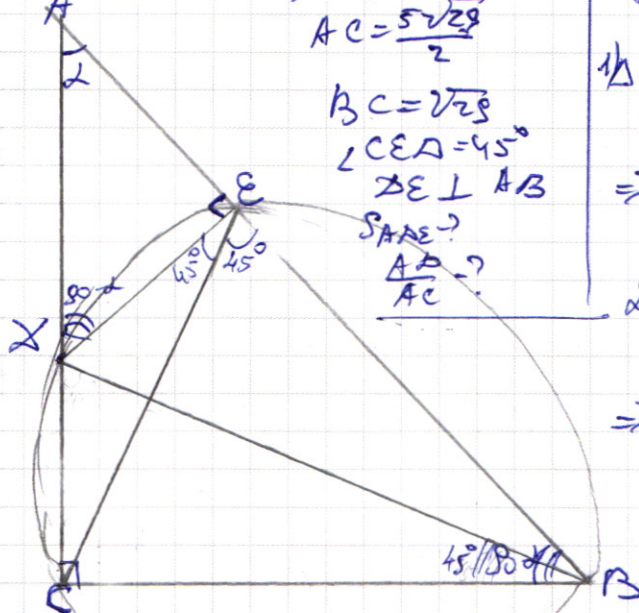 A
AC = 5√29 / 2
BC = √29
∠CED = 45°
DE ⊥ AB
S_ADE - ?
AD / AC - ?
1) Δ
=>
α
=>
α
E
45°
45°
90-α
D
C
45°
90-α
B